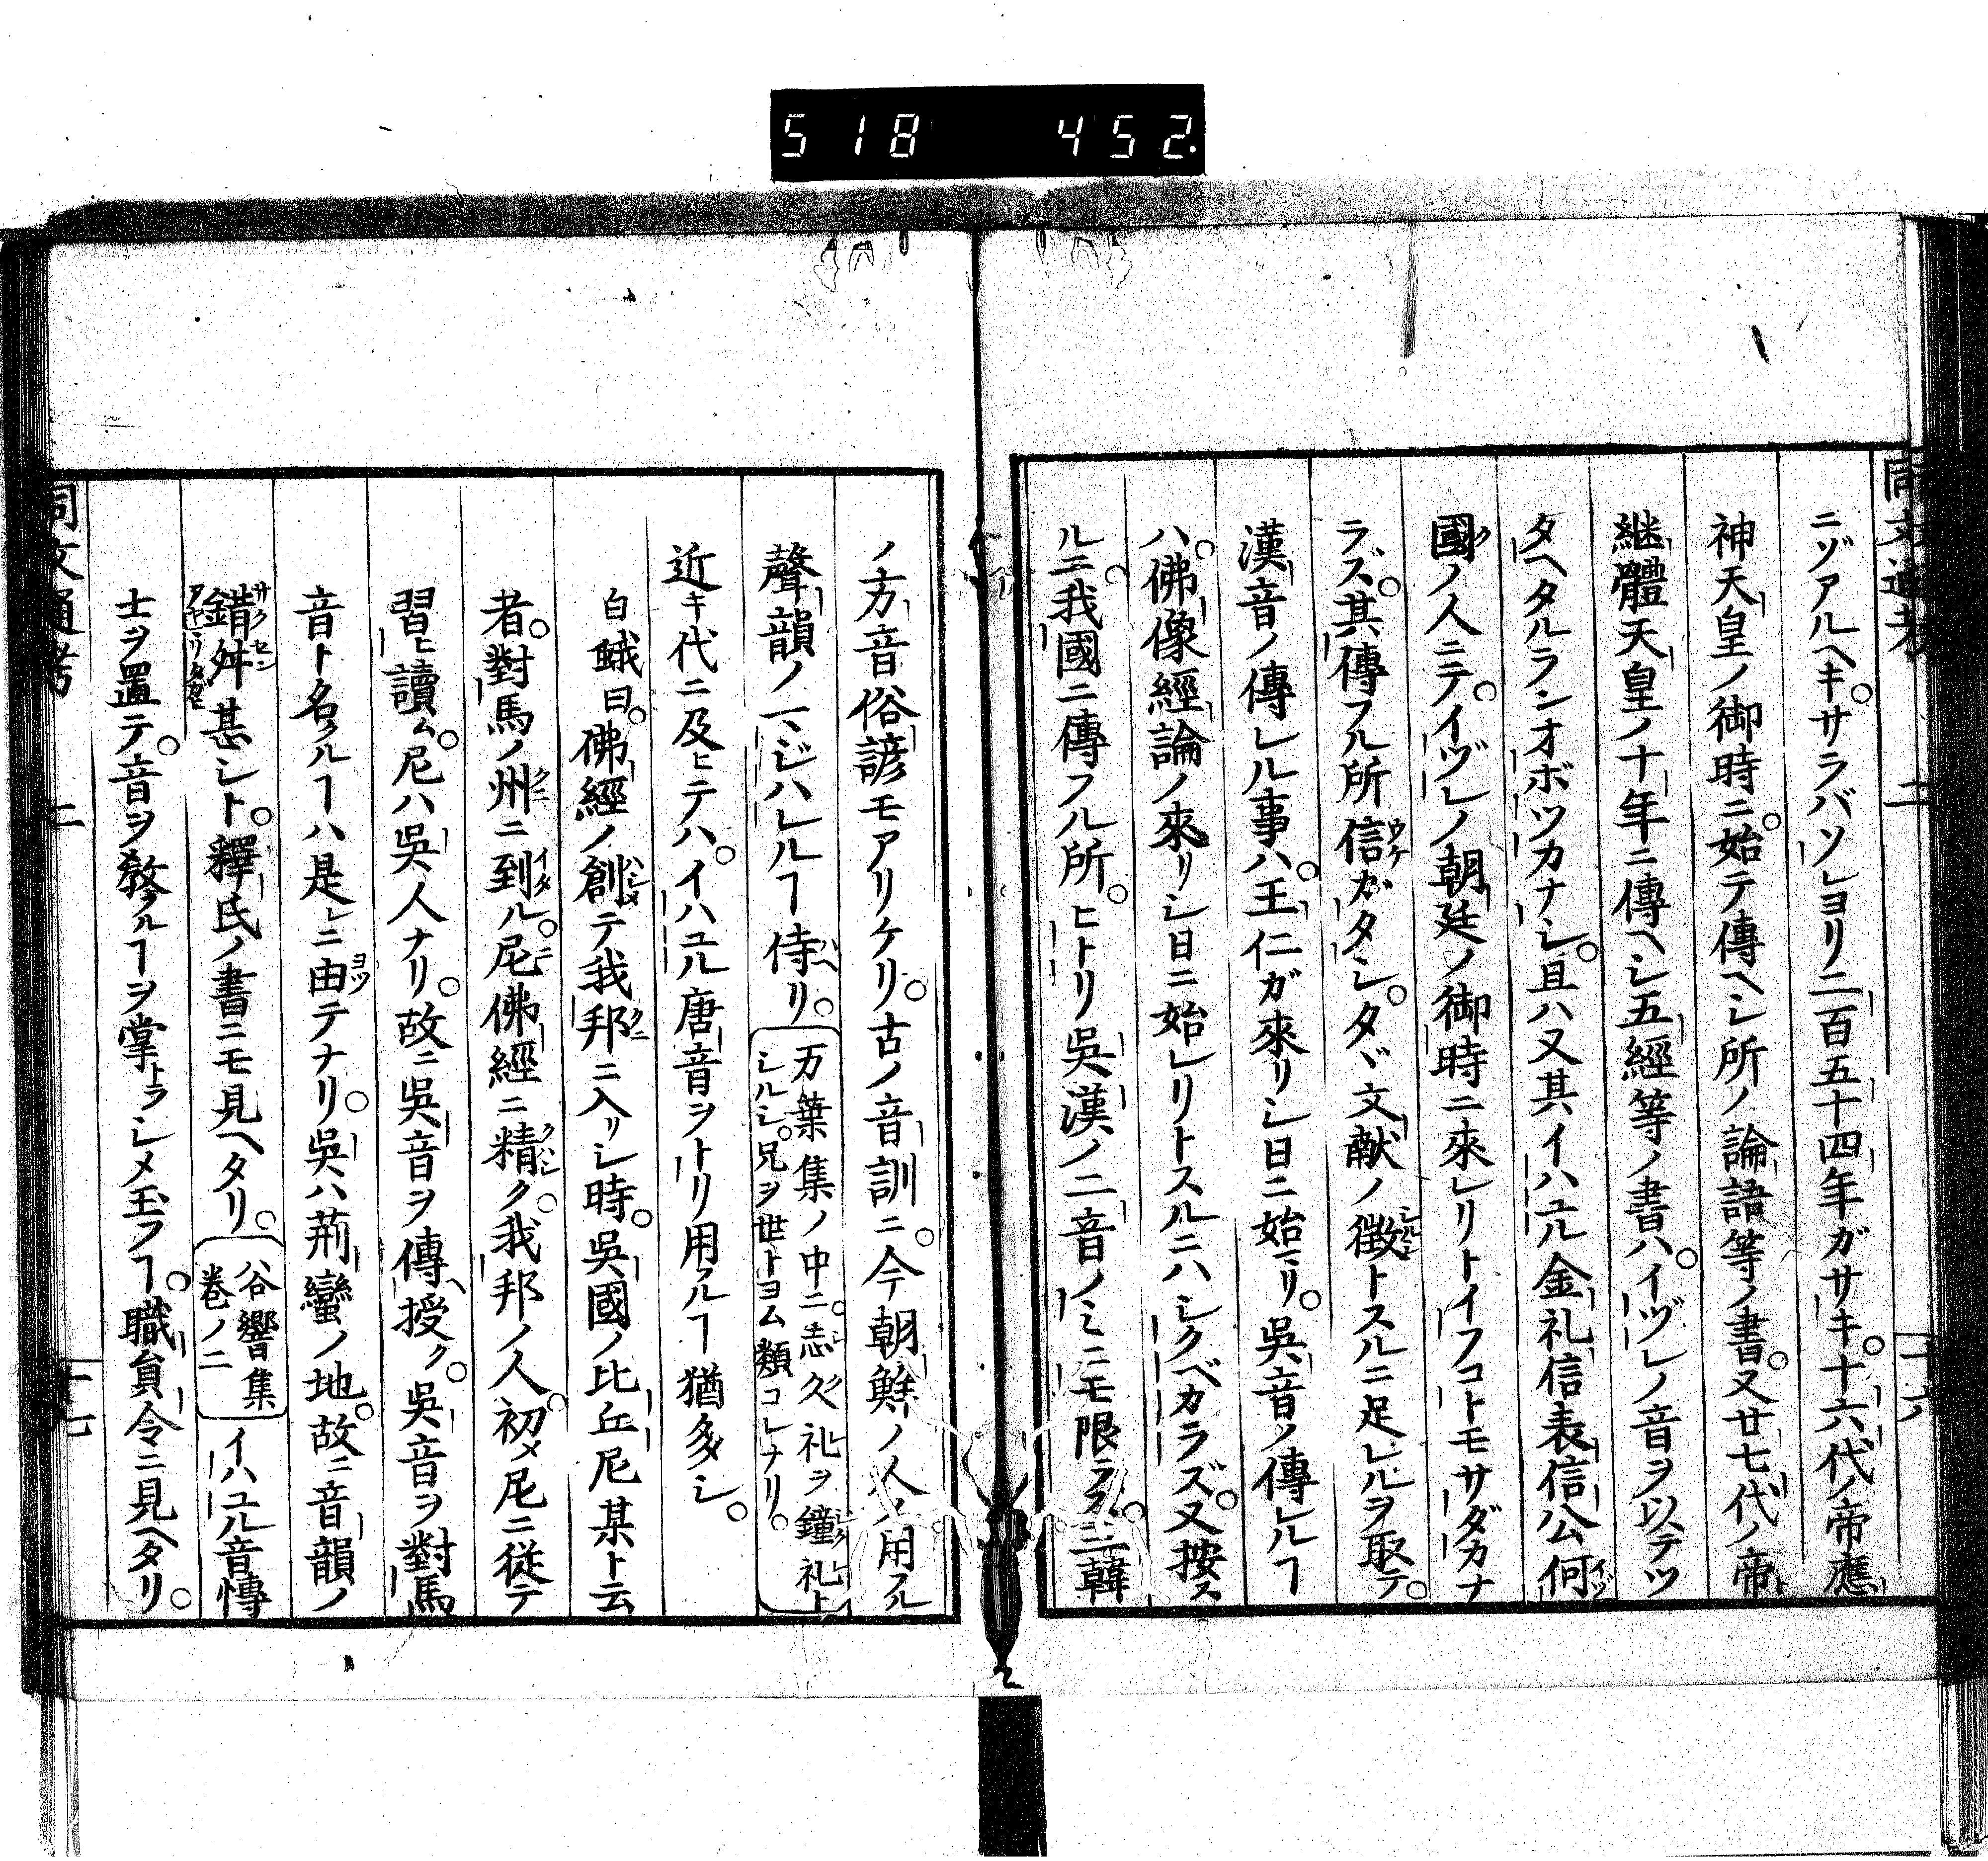 518 452.
同文通考 二 十六
ニゾアルヘキ。サラバソレヨリ二百五十四年ガサキ。十六代ノ帝應
神天皇ノ御時ニ。始テ傳ヘシ所ノ論語等ノ書。又廿七代ノ帝
継體天皇ノ十年ニ傳ヘシ五經等ノ書ハ。イヅレノ音ヲ以テツ
タヘタルランオボツカナシ。且ハ又其イハユル金礼信表信公何
國ノ人ニテ。イヅレノ朝廷ノ御時ニ來レリトイフコトモサダカナ
ラズ。其傳フル所信ガタシ。タヾ文献ノ徴トスルニ足レルヲ取テ。
漢音ノ傳レル事ハ。王仁ガ來リシ日ニ始マリ。吳音ノ傳レルヿ
ハ。佛像經論ノ來リシ日ニ始レリトスルニハシクベカラズ。又按ス
ルニ。我國ニ傳フル所。ヒトリ吳漢ノ二音ノミニモ限ラズ。三韓
ノ方音俗諺モアリケリ。古ノ音訓ニ。今朝鮮ノ人ノ用フル
聲韻ノマヽジハレルヿ侍リ。万葉集ノ中ニ。志久礼ヲ鐘礼ト
シルシ。兄ヲ世トヨム類コレナリ。
近キ代ニ及ヒテハ。イハユル唐音ヲトリ用フルヿ猶多シ。
白蛾曰。佛經ノ創テ我邦ニ入リシ時。吳國ノ比丘尼某ト云
者。對馬ノ州ニ到ル。尼佛經ニ精ク。我邦ノ人。初メ尼ニ從テ
習ヒ讀ム。尼ハ吳人ナリ。故ニ吳音ヲ傳ヘ授ク。吳音ヲ對馬
音ト名クルヿハ是レニ由テナリ。吳ハ荊蠻ノ地。故ニ音韻ノ
錯舛甚シト。釋氏ノ書ニモ見ヘタリ。谷響集
巻ノ二 イハユル音博
士ヲ置テ。音ヲ敎フルヿヲ掌トラシメ玉フヿ。職員令ニ見ヘタリ。
同文通考 二 十七